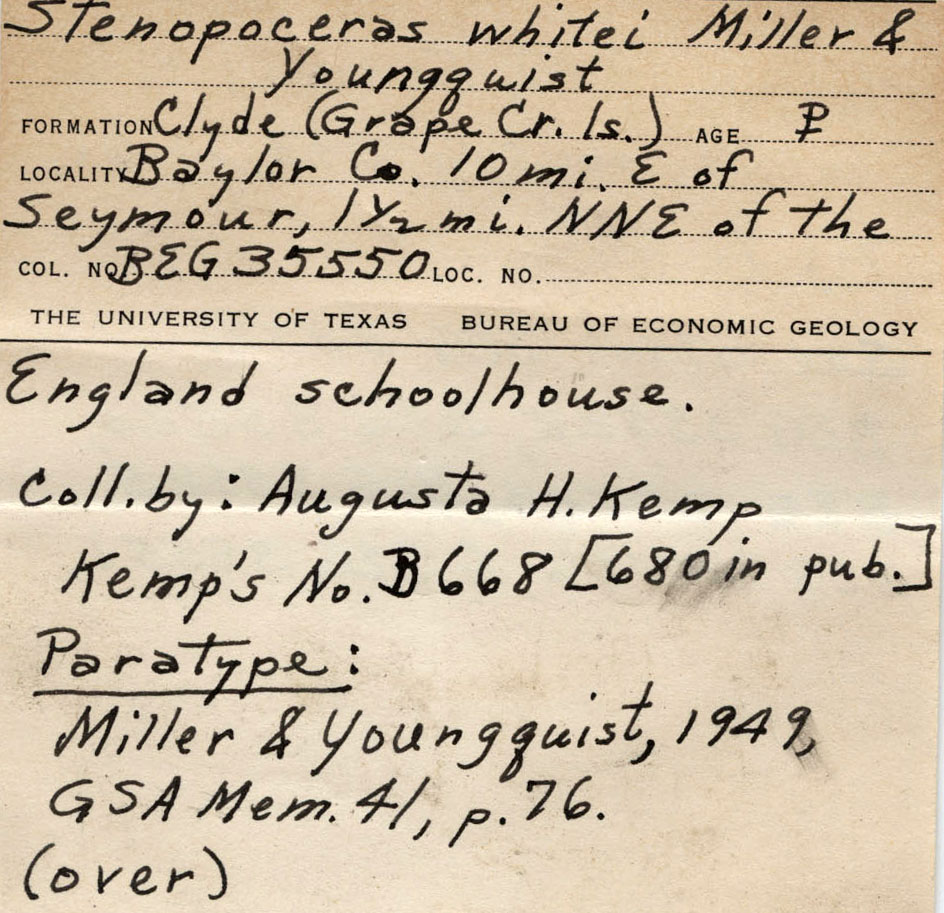 Stenopoceras whitei Miller &
Youngquist
FORMATION Clyde (Grape Cr. ls.) AGE P
LOCALITY Baylor Co. 10 mi. E of
Seymour, 1 1/2 mi. NNE of the
COL. NO. BEG 35550 LOC. NO.
THE UNIVERSITY OF TEXAS BUREAU OF ECONOMIC GEOLOGY
England schoolhouse.
Coll. by: Augusta H. Kemp
Kemp's No. B668 [680 in pub.]
Paratype:
Miller & Youngquist, 1949,
GSA Mem. 41, p. 76.
(over)